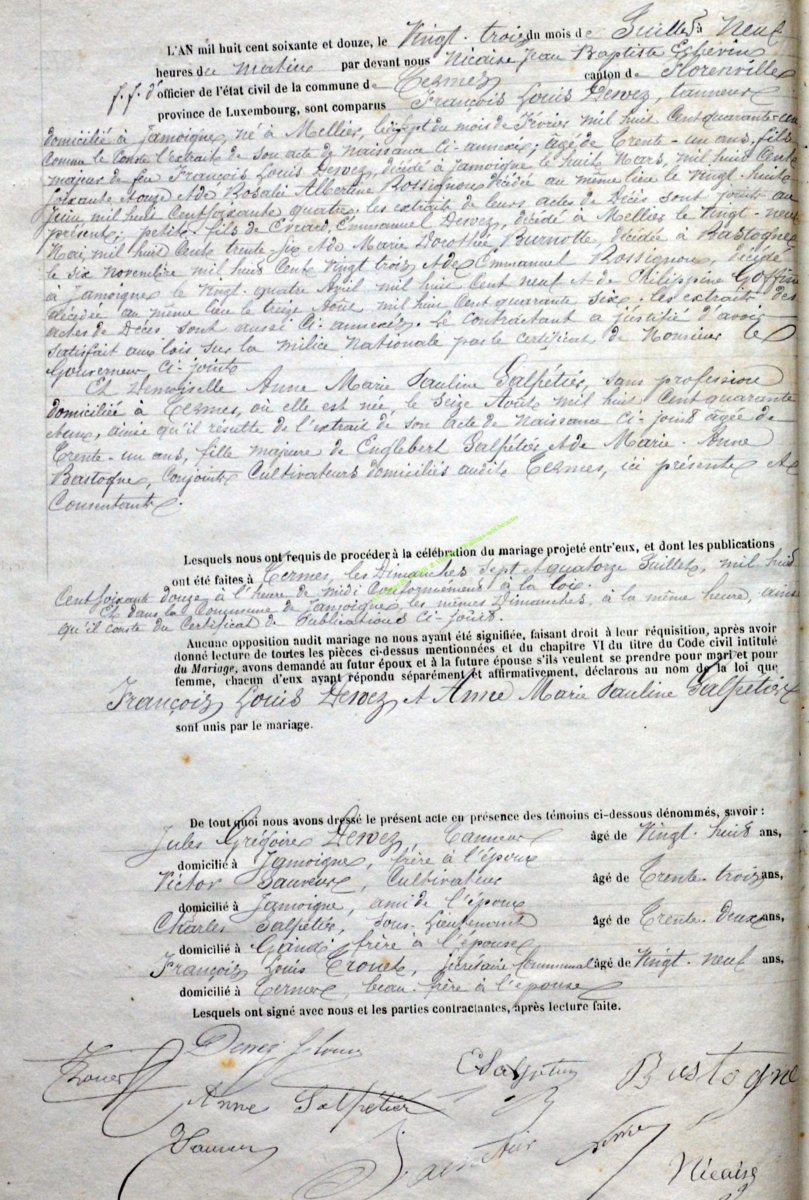 L'AN mil huit cent soixante et douze, le Vingt-trois du mois de Juillet à Neuf
heures du matin par devant nous Nicaise Jean Baptiste
f.f. d'officier de l'état civil de la commune de Termes canton de Florenville
province de Luxembourg, sont comparus François Louis Dewez, tanneur
domicilié à Jamoigne, né à Mellier, le sept du mois de Février mil huit Cent quarante-un
comme le Conste l'extrait de son acte de Naissance Ci-annexé; âgé de Trente-un ans, fils
majeur de feu François Louis Dewez, décédé à Jamoigne le huit Mars, mil huit Cent
soixante et de Rosalie Albertine Rossignon décédée au même lieu le vingt-huit
juin mil huit Cent soixante quatre; les extraits de leurs actes de Décès sont joints au
présent; petit-fils de Evrard Emmanuel Dewez, décédé à Mellier le Vingt-neuf
Mai, mil huit Cent trente-six et de Marie Dorothée Burnotte, décédée à Bastogne
le six Novembre mil huit Cent Vingt trois et de Emmanuel Rossignon, décédé
à Jamoigne le vingt-quatre Avril mil huit Cent neuf et de Philippine Goffin
décédée au même lieu le treize Août mil huit Cent quarante six. les extraits des
actes de Décès sont aussi Ci-annexés. Le Contractant a justifié d'avoir
satisfait aux lois sur la milice Nationale par le certificat de Monsieur le
Gouverneur, Ci-joint
Et Demoiselle Anne Marie Pauline Salpétier, sans profession
domiciliée à Termes, où elle est née, le Seize Août mil huit Cent quarante
ainsi qu'il résulte de l'extrait de son acte de Naissance Ci-joint agée de
Trente-un ans, fille majeure de Englebert Salpétier et de Marie-Anne
Bastogne, Conjoints Cultivateurs domiciliés audit Termes, ici présents et
Consentants.
Lesquels nous ont requis de procéder à la célébration du mariage projeté entr'eux, et dont les publications
ont été faites à Termes, les Dimanches Sept et quatorze Juillet, mil huit
Cent soixante douze, à l'heure de midi Conformément à la loi.
Et dans la Commune de Jamoigne, les mêmes Dimanches, à la même heure, ainsi
qu'il conste du Certificat de Publications Ci-joint.
Aucune opposition audit mariage ne nous ayant été signifiée, faisant droit à leur réquisition, après avoir
donné lecture de toutes les pièces ci-dessus mentionnées et du chapitre VI du titre du Code civil intitulé
du Mariage, avons demandé au futur époux et à la future épouse s'ils veulent se prendre pour mari et pour
femme, chacun d'eux ayant répondu séparément et affirmativement, déclarons au nom de la loi que
François Louis Dewez et Anne Marie Pauline Salpétier
sont unis par le mariage.
De tout quoi nous avons dressé le présent acte en présence des témoins ci-dessous dénommés, savoir :
Jules Grégoire Dewez, Tanneur âgé de Vingt-huit ans,
domicilié à Jamoigne, frère à l'époux
Victor Sauveur, Cultivateur âgé de Trente-trois ans,
domicilié à Jamoigne, ami de l'époux
Charles Salpétier, Sous-Lieutenant âgé de Trente-deux ans,
domicilié à Gand, frère à l'épouse
François Louis secrétaire Communal âgé de Vingt-neuf ans,
domicilié à Termes, beau-frère à l'épouse
Lesquels ont signé avec nous et les parties contractantes, après lecture faite.
Dewez f Louis
Bastogne
Anne Salpétier
Nicaise